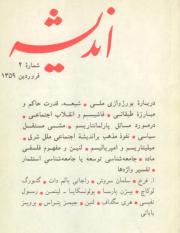 اندیشه
شماره ۲
فروردین ۱۳۵۹
دربارهٔ بورژوازی ملی * شیعه، قدرت حاکم و
مبارزهٔ طبقاتی * فاشیسم و انقلاب اجتماعی *
درمورد مسائل پارلمانتاریسم * مشی مستقل
سیاسی * نفوذ مذهب براندیشهٔ اجتماعی ملل شرق *
میلیتاریسم و امپریالیسم * لنین و مفهوم فلسفی
ماده * جامعه‌شناسی توسعه یا جامعه‌شناسی استثمار
تفسیر واژه‌ها
ا. فرخ * سلمان سروش * راجانی پالم دات * گئورگ
لوکاچ * بیژن پارسا * لنین * رسول
نفیسی * هری مگداف * لنین * جیمز پتراس * پرویز
بابائی